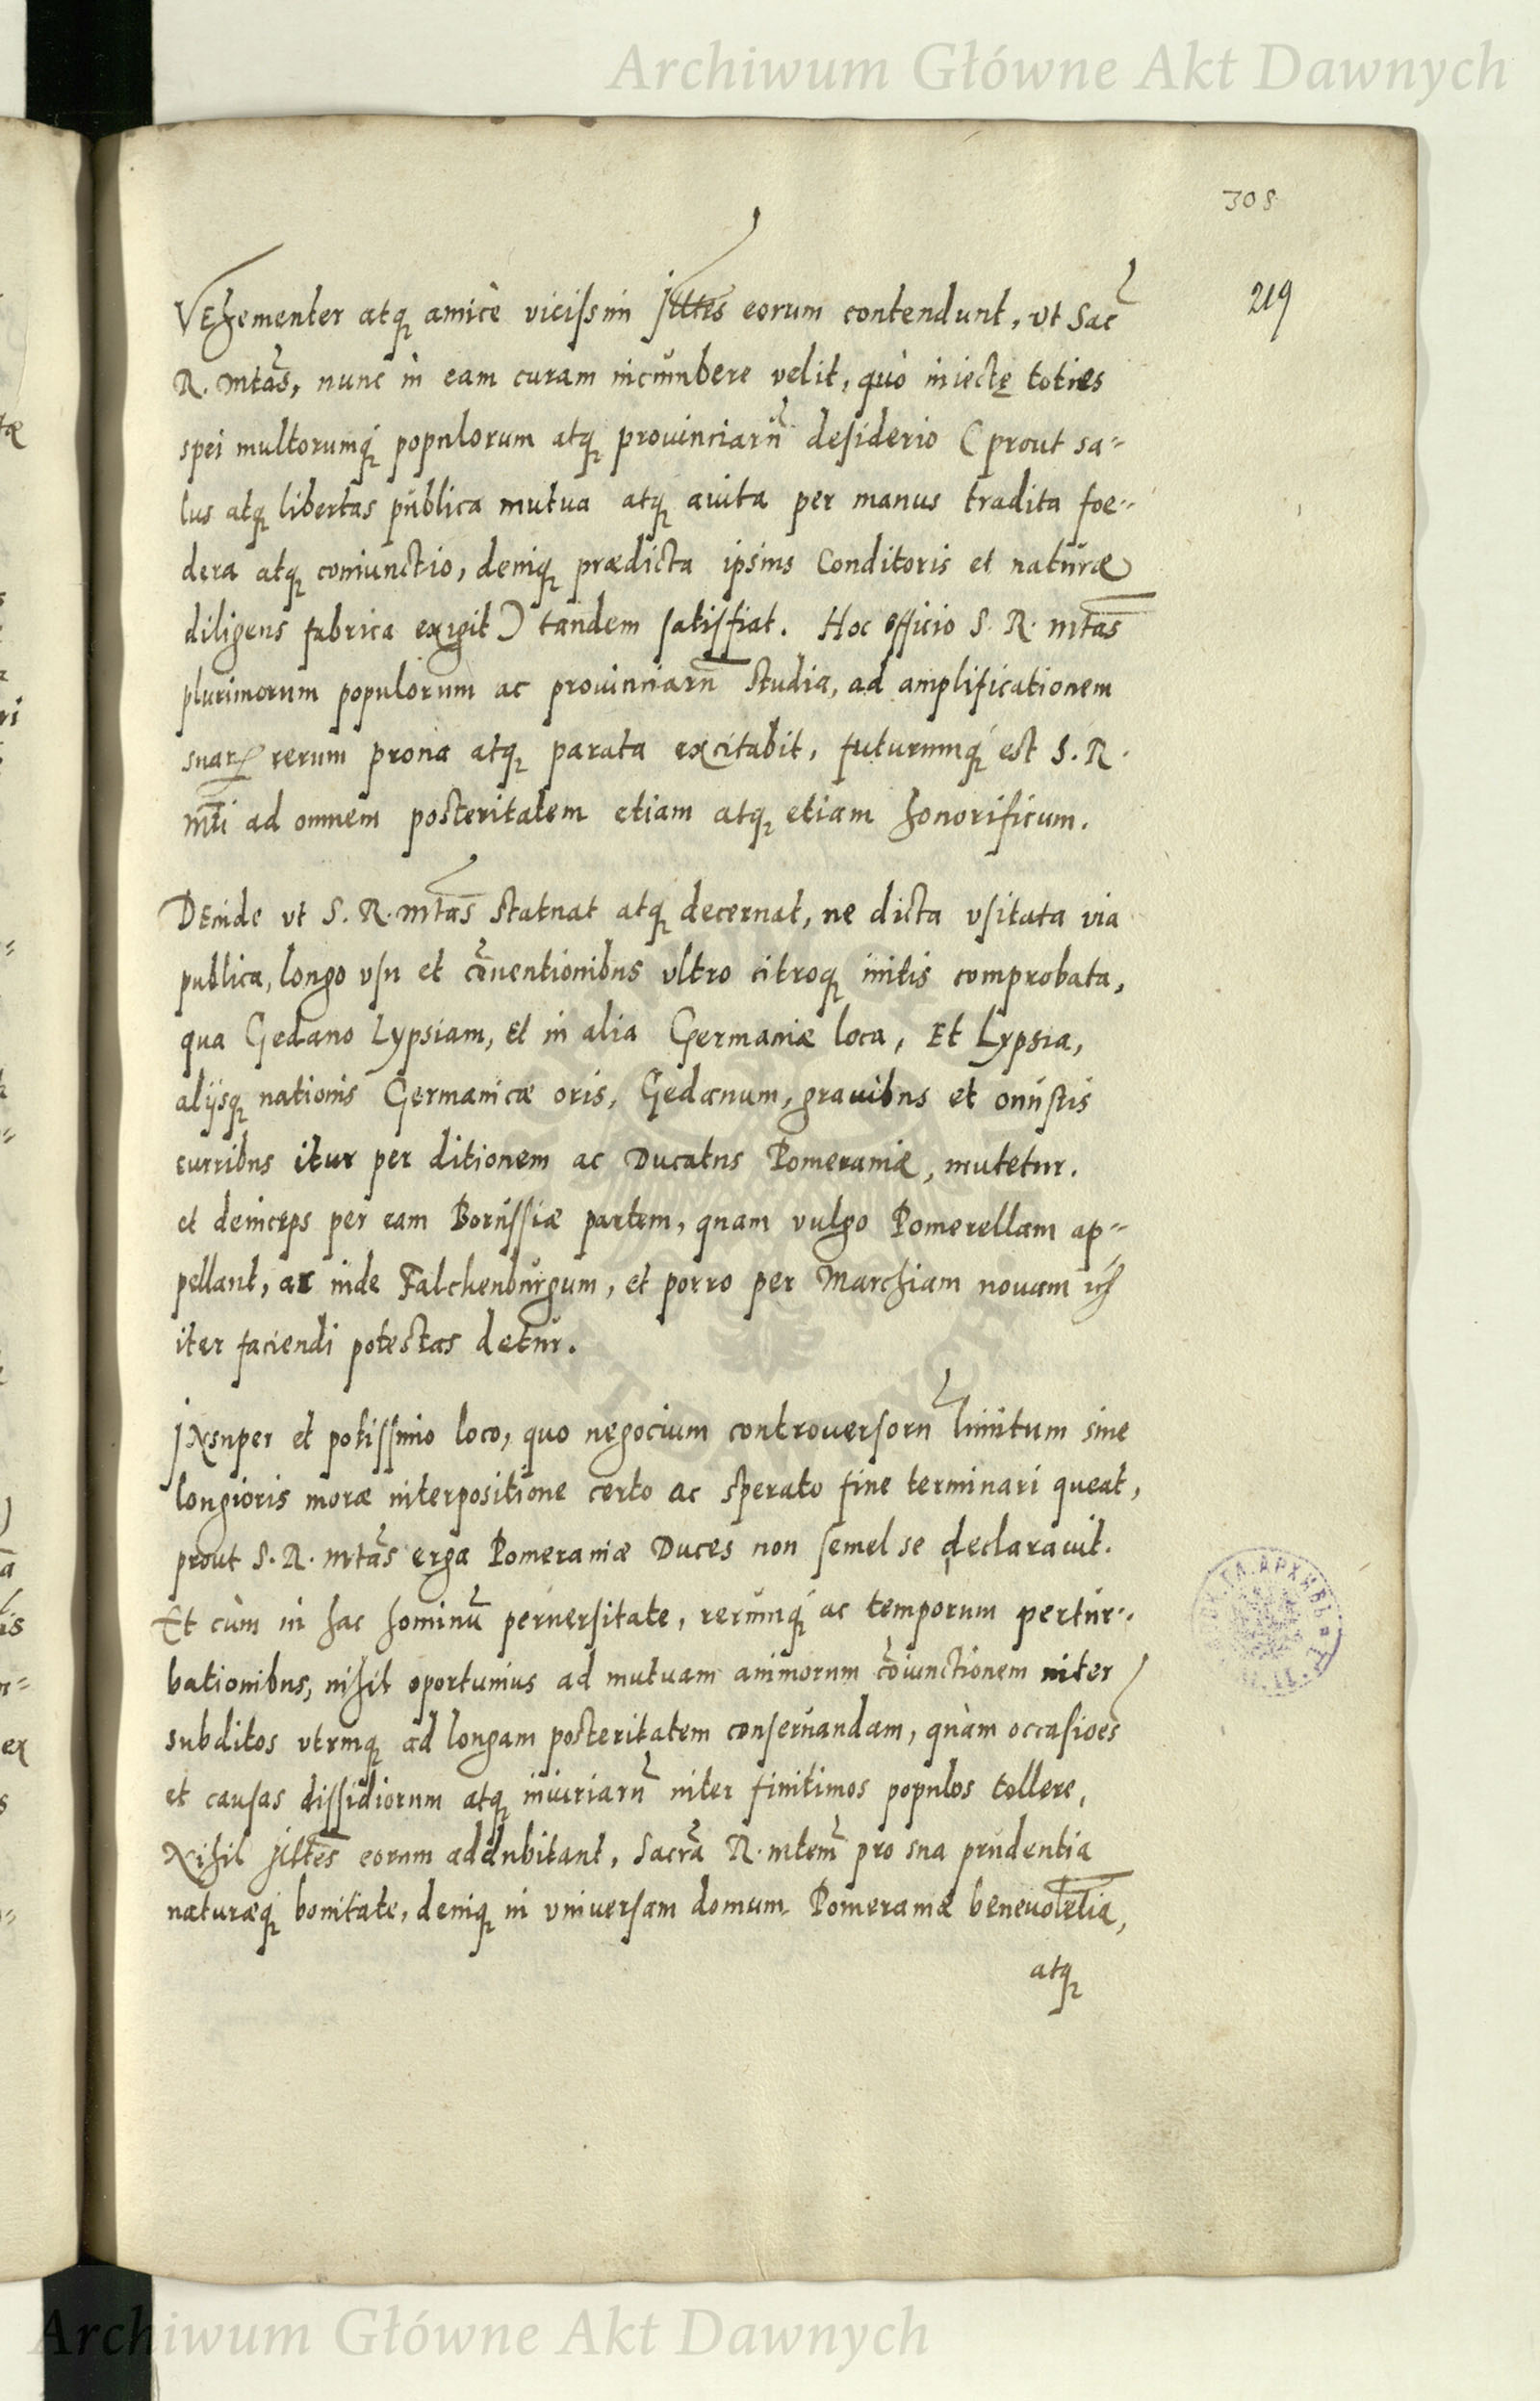 Archiwum Główne Akt Dawnych
308
219
VEhementer atq, amicè vicissim Jlltes eorum contendunt, vt Sac
R. Mtas, nunc in eam curam incumbere velit, quò iniectę toties
spei multorumq, populorum atq, prouinciarũ desiderio (prout sa-
lus atq, libertas publica mutua atq, auita per manus tradita foe-
dera atq, coniunctio, deniq, prædicta ipsius Conditoris et naturæ
diligens fabrica exigit) tandem satisfiat. Hoc officio S. R. Mtas
plurimorum populorum ac prouinciarũ studia, ad amplificationem
suarꝝ rerum prona atq, parata excitabit, futurumq, est S. R.
Mti ad omnem posteritatem etiam atq, etiam honorificum.
DEinde vt S. R. Mtas statuat atq, decernat, ne dicta vsitata via
publica, longo vsu et cõuentionibus vltro citroq, initis comprobata,
qua Gedano Lypsiam, et in alia Germaniæ loca, Et Lypsia,
alijsq, nationis Germanicæ oris, Gedanum, grauibus et onustis
curribus itur per ditionem ac Ducatus Pomeraniæ, mutetur.
et deinceps per eam Borussiæ partem, quam vulgo Pomerellam ap-
pellant, ac inde Falchenburgum, et porro per Marchiam nouam
iter faciendi potestas detur.
JNsuper et potissimo loco, quo negocium controuersorũ limitum sine
longioris moræ interpositione certo ac sperato fine terminari queat,
prout S. R. Mtas erga Pomeraniæ Duces non semel se declarauit.
Et cùm in hac hominũ peruersitate, rerumq, ac temporum pertur-
bationibus, nihil oportunius ad mutuam animorum cõiunctionem inter
subditos vtrinq, ad longam posteritatem conseruandam, quàm occasioēs
et causas dissidiorum atq, iniuriarũ inter finitimos populos tollere,
Nihil Jlltes eorum addubitant, Sacrã R. Mtem pro sua prudentia
naturæq, bonitate, deniq, in vniuersam domum Pomeraniæ beneuolẽtia,
atq,
Archiwum Główne Akt Dawnych